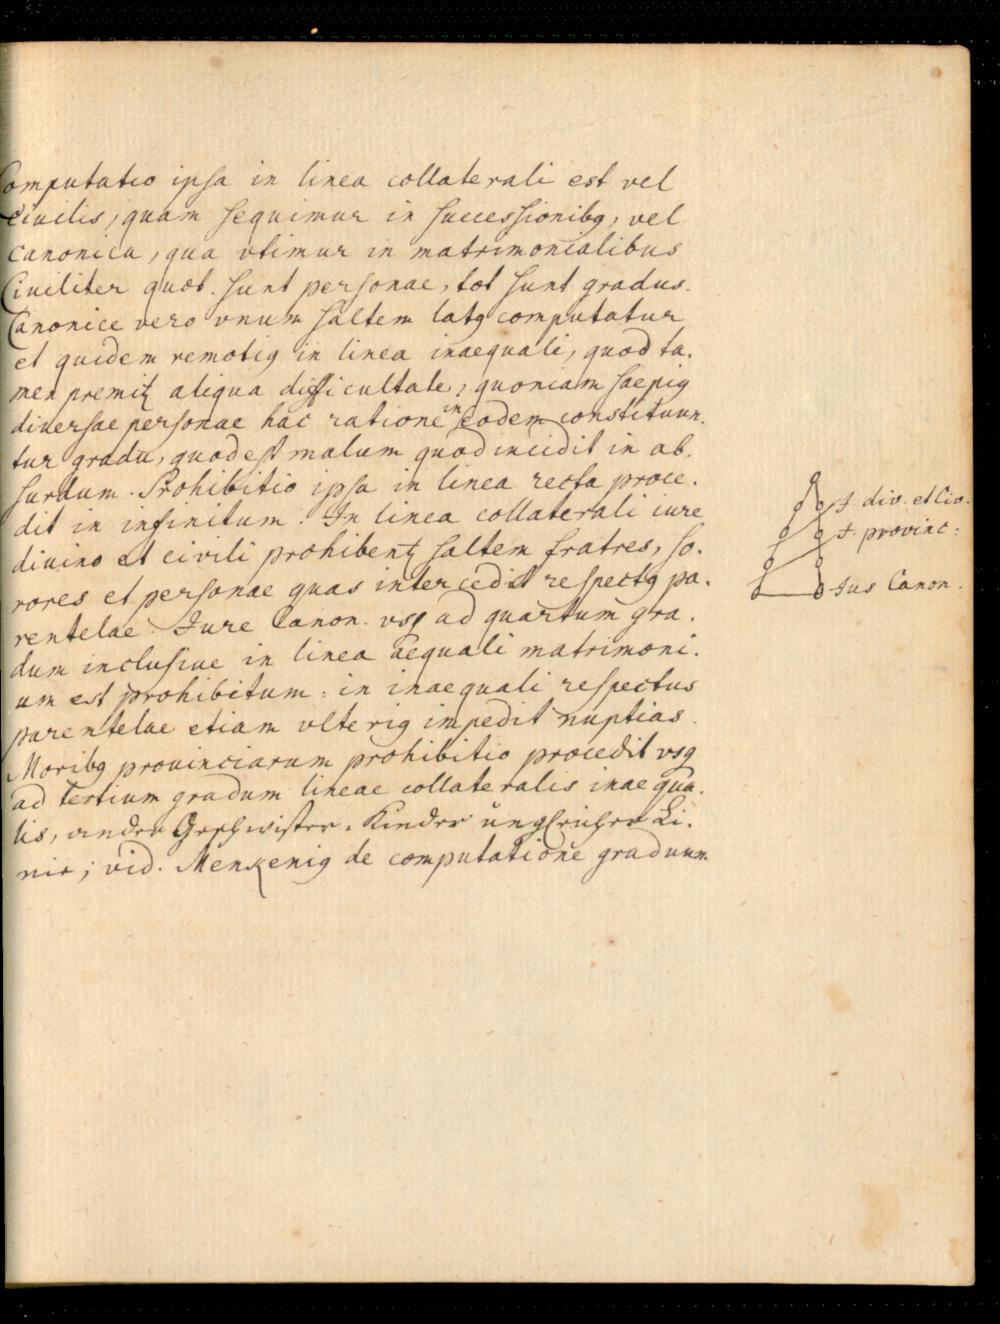 Computatio ipsa in linea collaterali est vel
Ciuilis, quam sequimur in successionibq, vel
canonica, qua vtimur in matrimonialibus
Ciuiliter quot. sunt personae, tot sunt gradus.
Canonice vero vnum saltem latq computatur
et quidem remotiq in linea inaequali, quod ta.
men premitz aliqua difficultate, quoniam saepiq
diuersae personae hac ratione in eodem constituun.
tur gradu, quod est malum quod incidit in ab.
surdum. Prohibitio ipsa in linea recta proce.
dit in infinitum. In linea collaterali iure
diuino et civili prohibentz saltem fratres, so.
rores et personae quas intercedit respectq pa.
rentelae. Jure Canon. vsq ad quartum gra.
dum inclusiue in linea aequali matrimoni.
um est prohibitum: in inaequali respectus
parentelae etiam vlteriq impedit nuptias.
Moribq prouinciarum prohibitio procedit vsq
ad tertium gradum lineae collateralis inaequa.
lis, andrer Geschwister. Kinder ungleicher Li.
nie; vid. Menkeniq de computatione graduum
J. div. et Civ.
J. provinc:
Jus Canon.